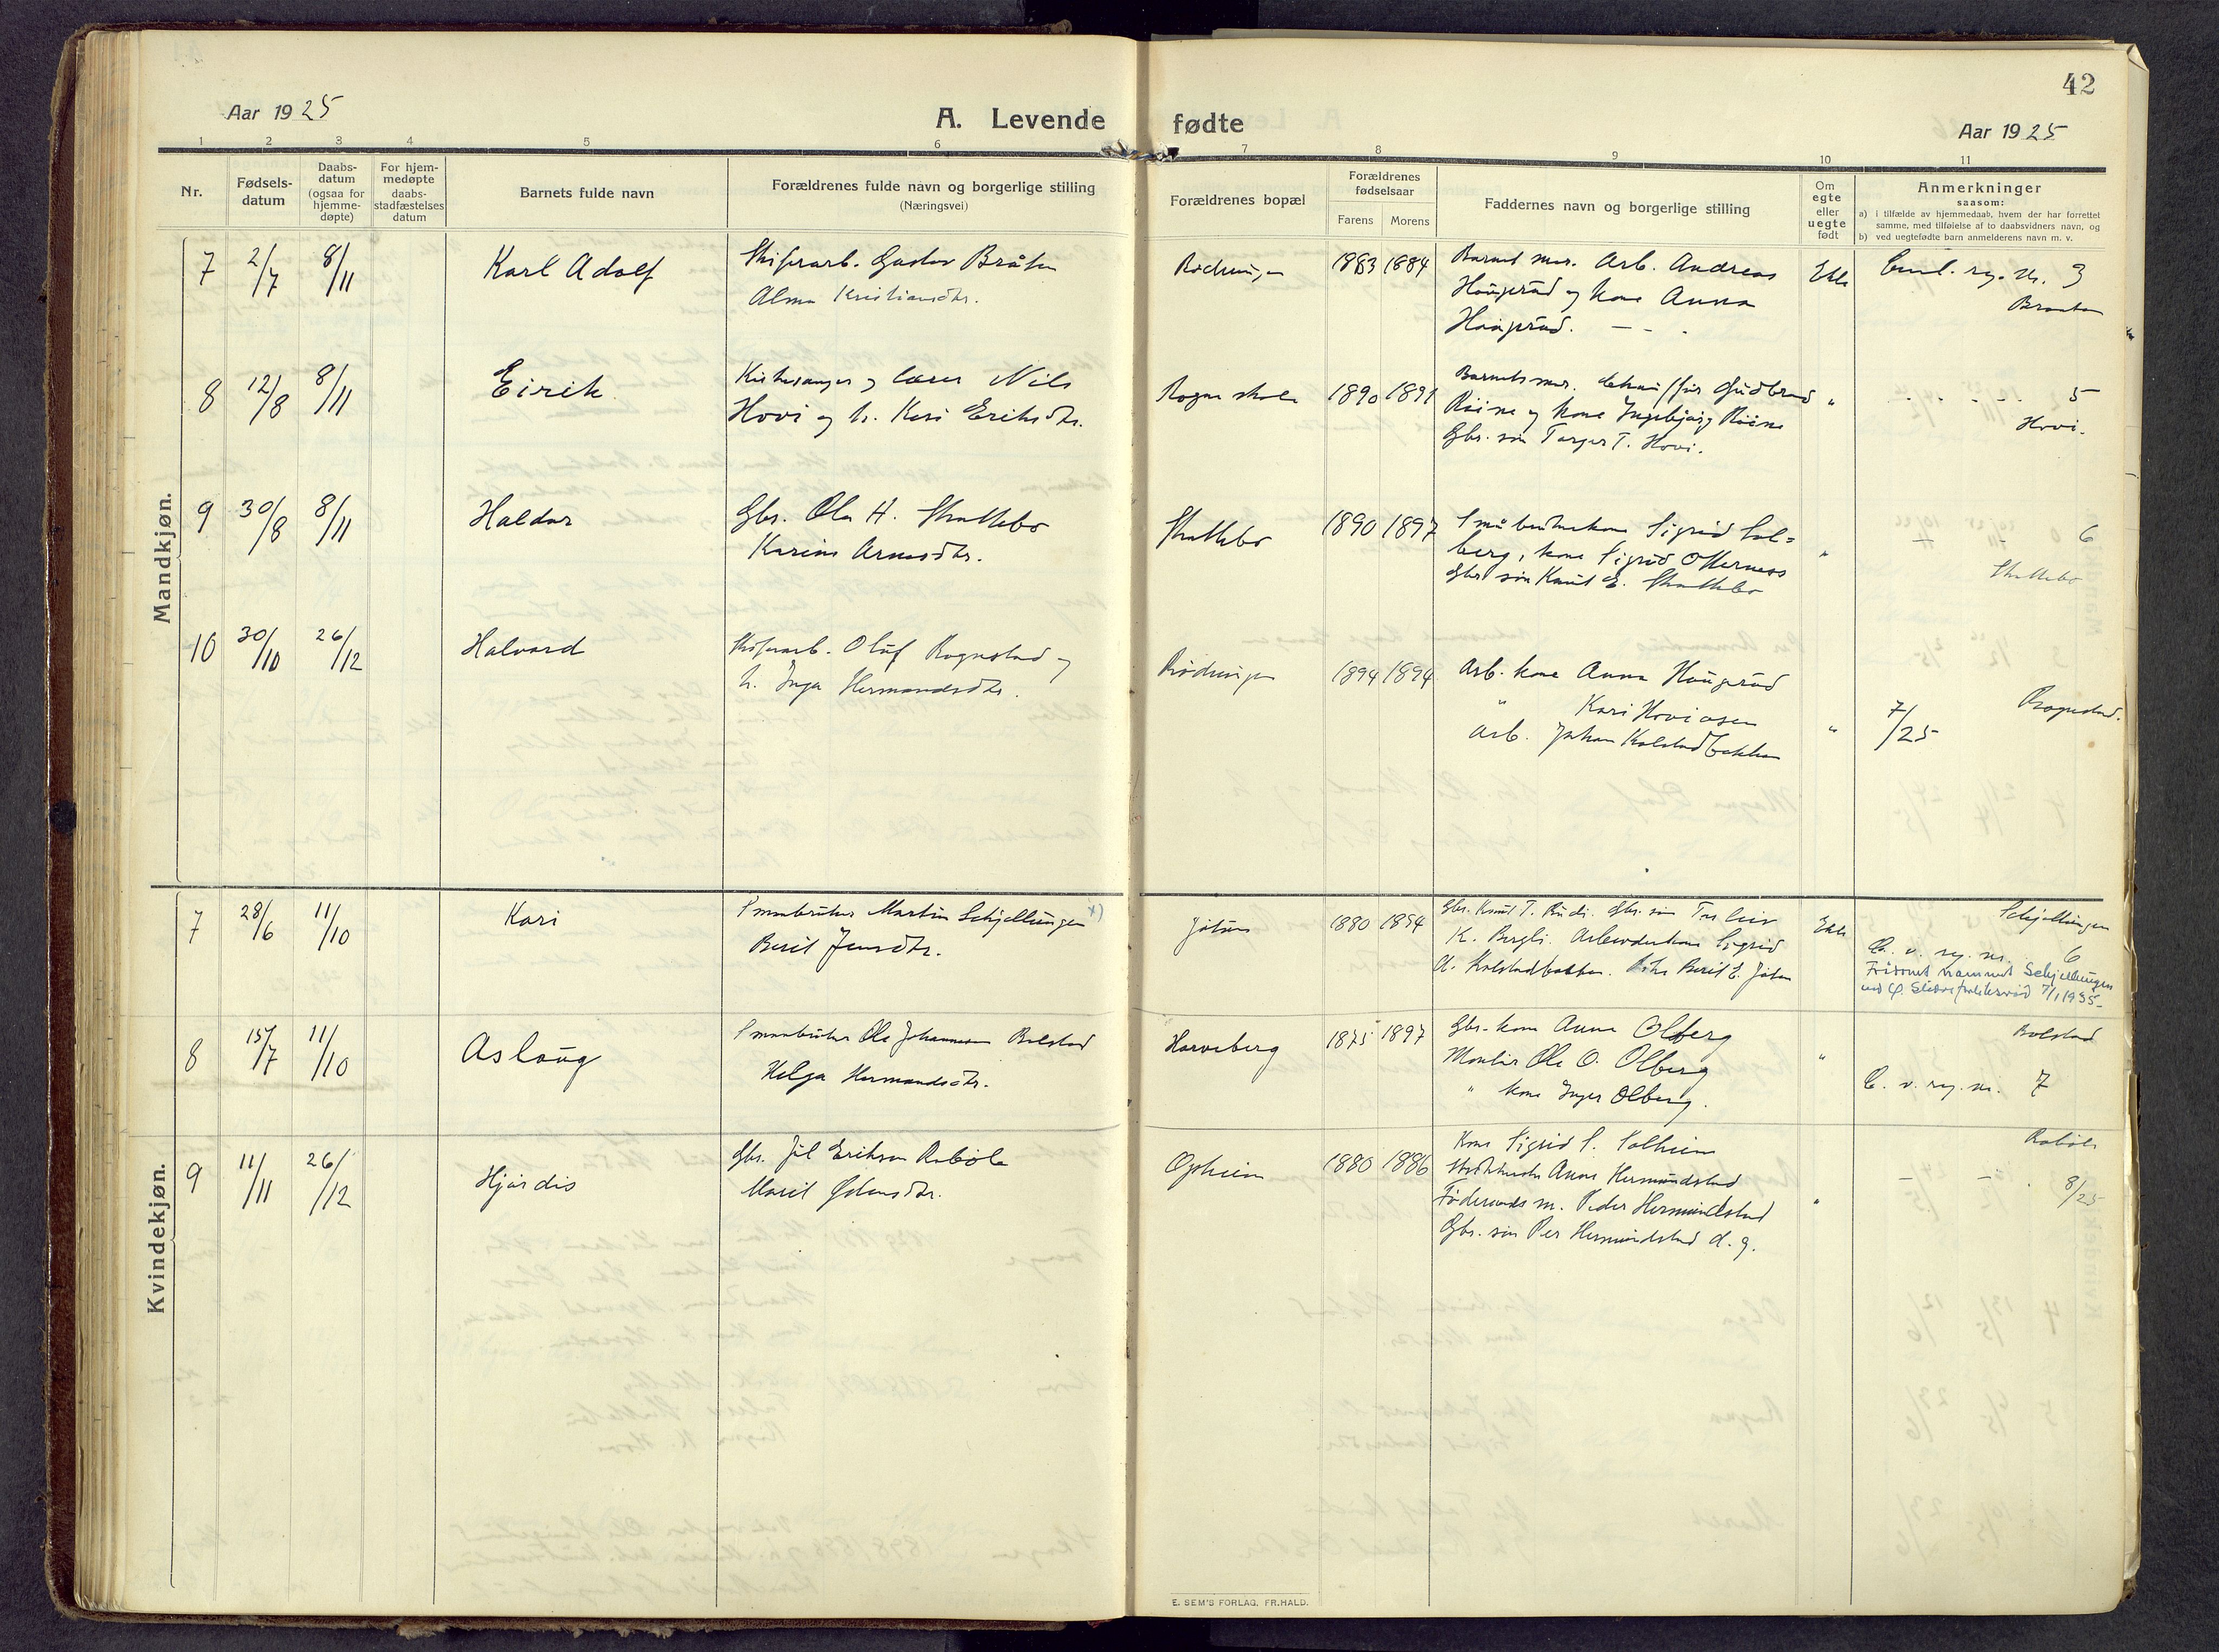 42
Aar 1925
A. Levende fødte
Aar 1925
1 2 3 4 5 6 7 8 9 10 11
Nr.
Fødsels-
datum
Daabs-
datum
(ogsaa for
hjemme-
døpte)
For hjem-
medøpte
daabs-
stadfæstelses
datum
Barnets fulde navn
Forældrenes fulde navn og borgerlige stilling
(Næringsvei)
Forældrenes bopæl
Forældrenes
fødselsaar
Farens Morens
Faddernes navn og borgerlige stilling
Om
egte
eller
uegte
født
Anmerkninger
saasom:
a) i tilfælde av hjemmedaab, hvem der har forrettet
samme, med tilføielse af to daabsvidners navn, og
b) ved uegtefødte barn anmelderens navn m. v.
Mandkjøn.
7 2/7 8/11 Karl Adolf
Skiferarb. Gustav Bråten
Alma Kristiansdtr.
1883 1884
Barnets mor. Arb. Andreas
Haugerud og kone Anna
Haugerud.
Ekte
reg. nr. 3
Braaten
8 12/8 8/11 Eirik
Kirkesanger og lærer Nils
Hovi og h. Kari Eriksdtr.
Rogne skole 1890 1891
Barnets mor. Gudbrand
Røine og kone Ingebjørg Røine
Gbr. søn Torger T. Hovi.
"
5
Hovi.
9 30/8 8/11 Haldor
Gbr. Ola H. Skattebo
Karine Arnesdtr.
Skattebo 1890 1897
Småbrukerkone Sigrid Sol=
berg, kone Sigrid Otterness
Gbr. søn Knut E. Skattebo
"
6
Skattebo
10 30/10 26/12 Halvard
Skiferarb. Oluf Rognstad og
h. Inga Hermandsdtr.
1894 1894
Arb. kone Anna Haugerud
" Kari Hoviåsen
Arb. Johan Kolstadbakken
"
7/25
Rognstad.
Kvindekjøn.
7 28/6 11/10 Kari
Smaabruker Martin Schjellungen x)
Berit Jensdtr.
1880 1894
Gbr. Knut T. Rudi. Gbr. søn
K. Bergli. Arbeiderkone Sigrid
Kolstadbakken. Berit E.
Ekte
Schjellungen
C. v. reg. nr. 6
namnet Schjellungen
7/1 1935.
8 15/7 11/10 Aslaug
Smaabruker Ole Johannessen Bolstad
Helga Hermandsdtr.
Harveberg 1875 1897
Gbr. kone Anna Olberg
Montør Ole O. Olberg
" kone Inger Olberg.
"
Bolstad
C. v. reg. nr. 7
9 11/11 26/12 Hjørdis
Gbr. Jul Eriksen Robøle
Marit Johansdtr.
Opheim 1880 1886
Kone Sigrid S. Solheim
Anna Hermundstad
Føderaads m. Peder Hermundstad
Gbr. søn Per Hermundstad d. y.
"
Robøle
8/25
E. SEM'S FORLAG, FR.HALD.